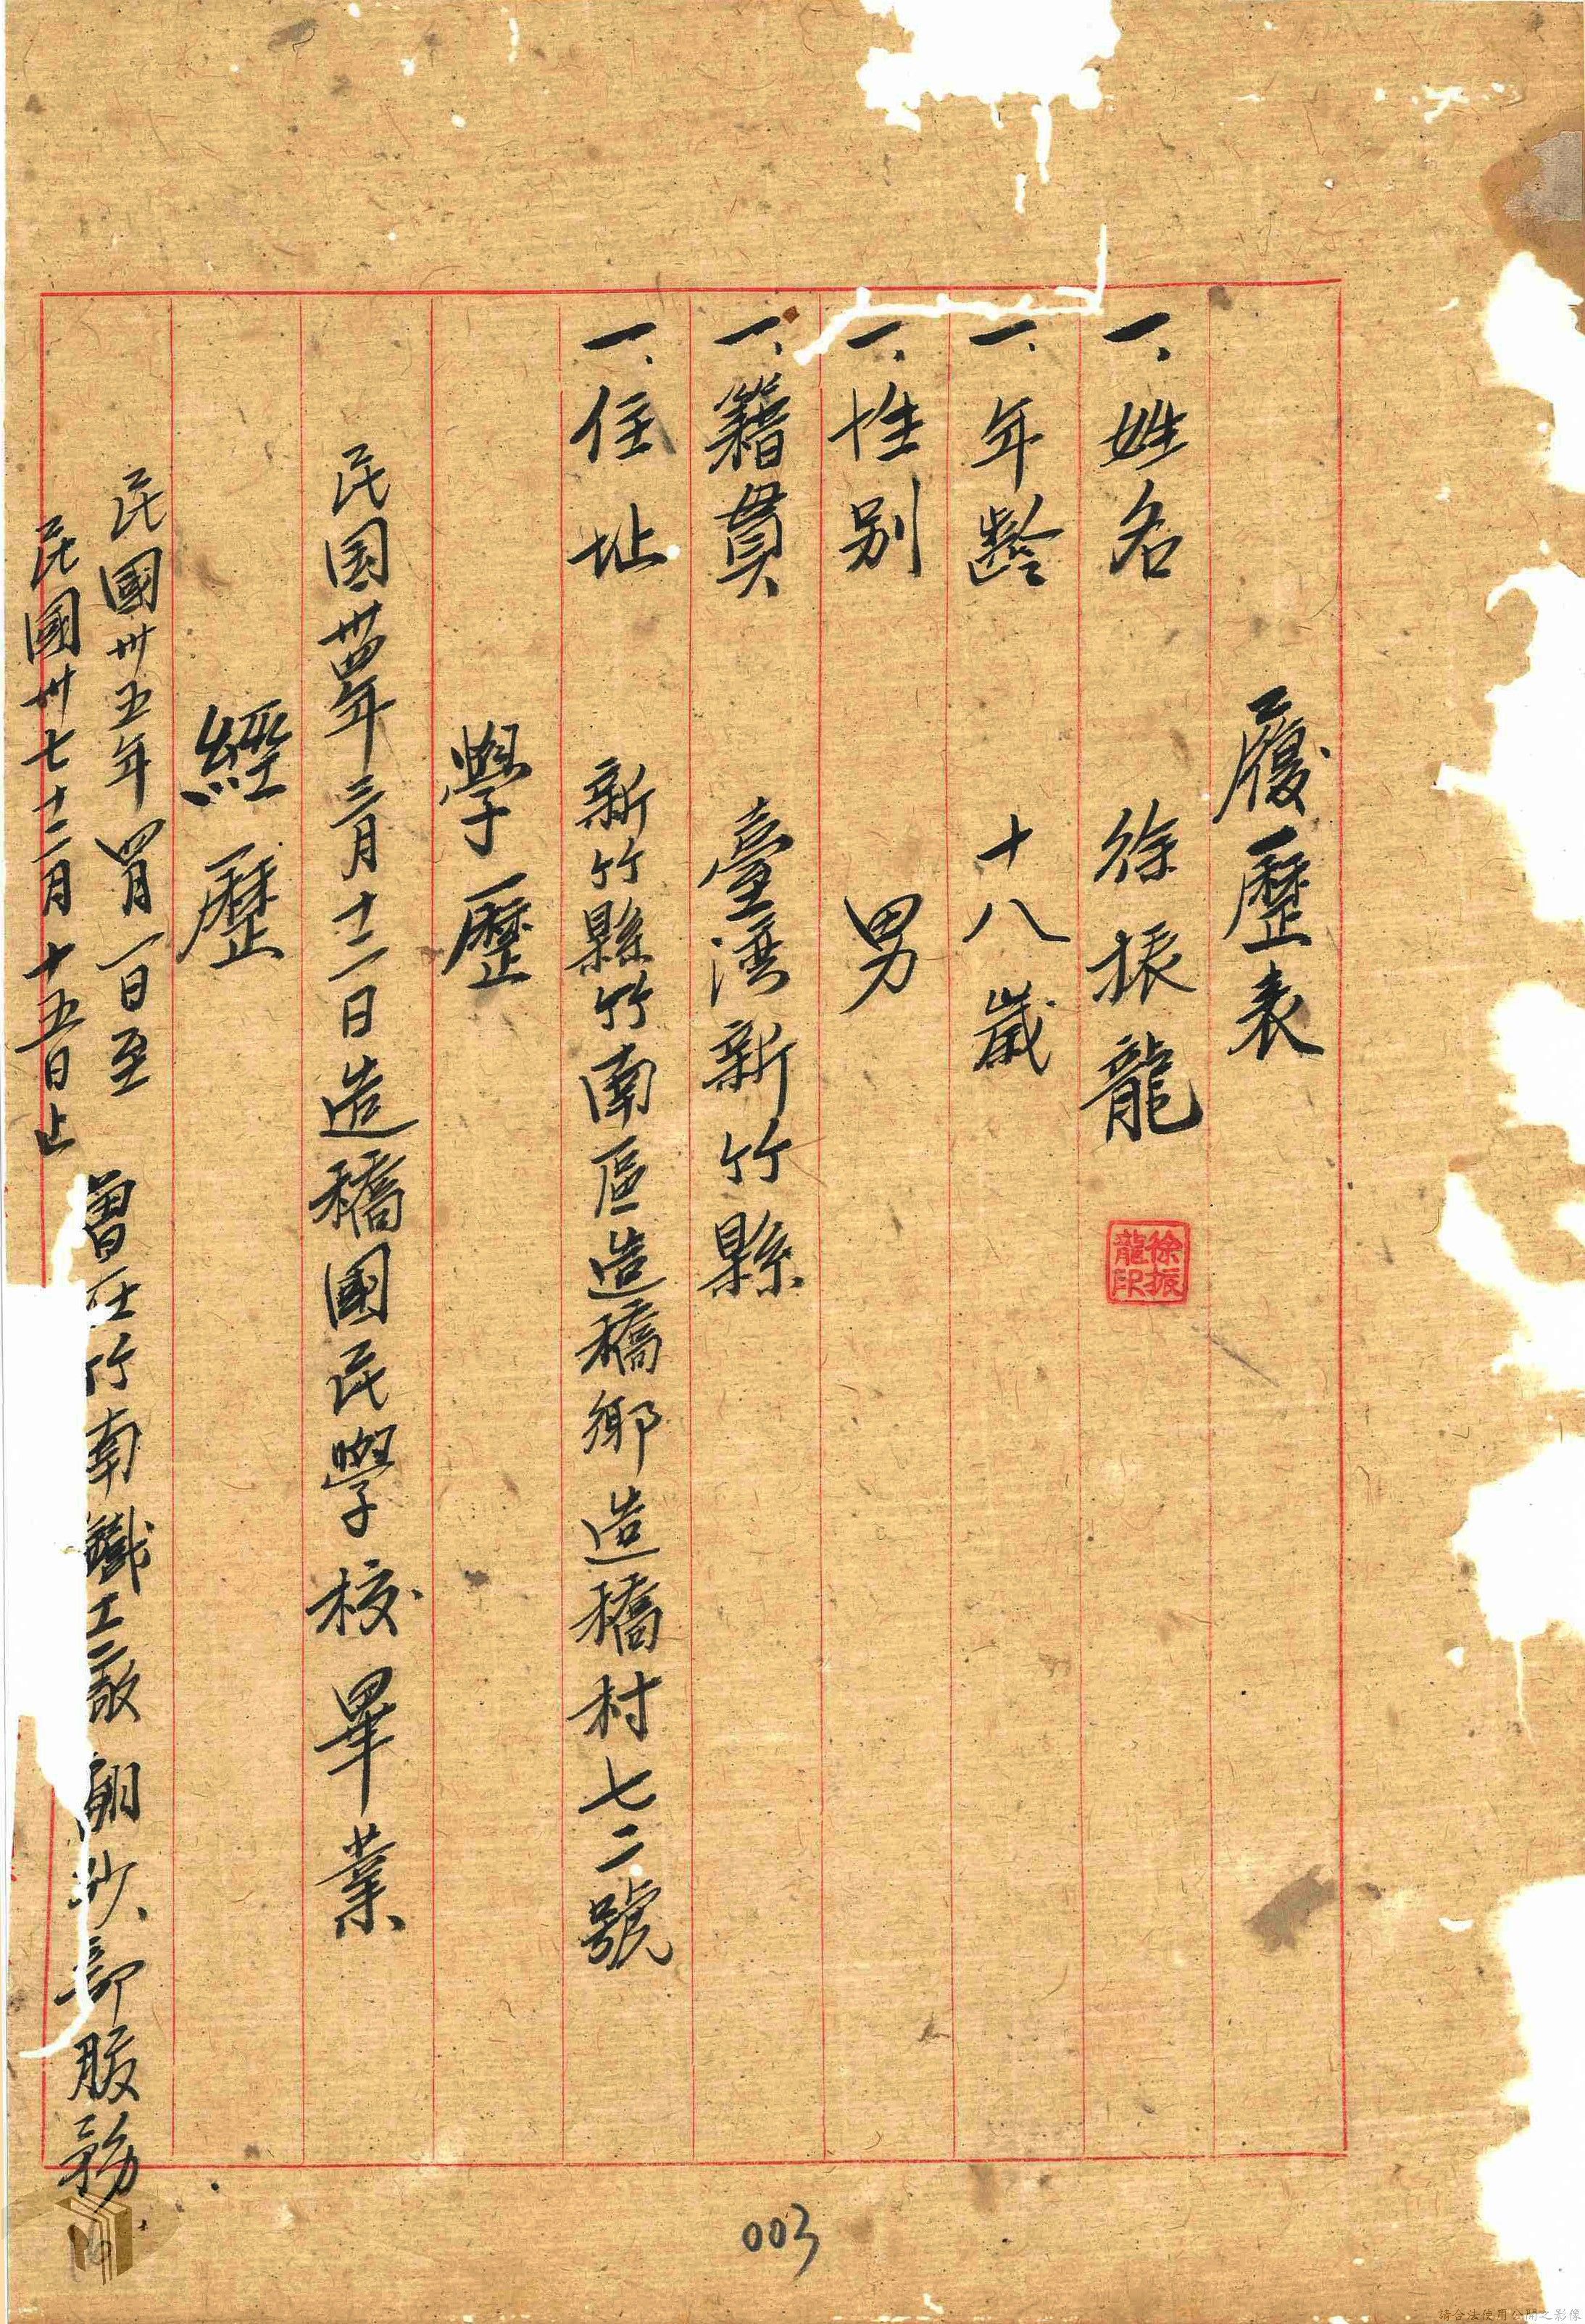 履歷表
一、姓名 徐振龍
徐振龍印
一、年齡 十八歲
一、性别 男
一、籍貫 臺湾新竹縣
一、住址 新竹縣竹南區造橋鄉造橋村七二號
學歷
民国卅四年三月十二日造橋國民學校畢業
經歷
民國卅五年四月一日至
民國卅七十二月十五日止
曾任竹南鐵工廠翻砂部服務
003
請合法使用公開之影像